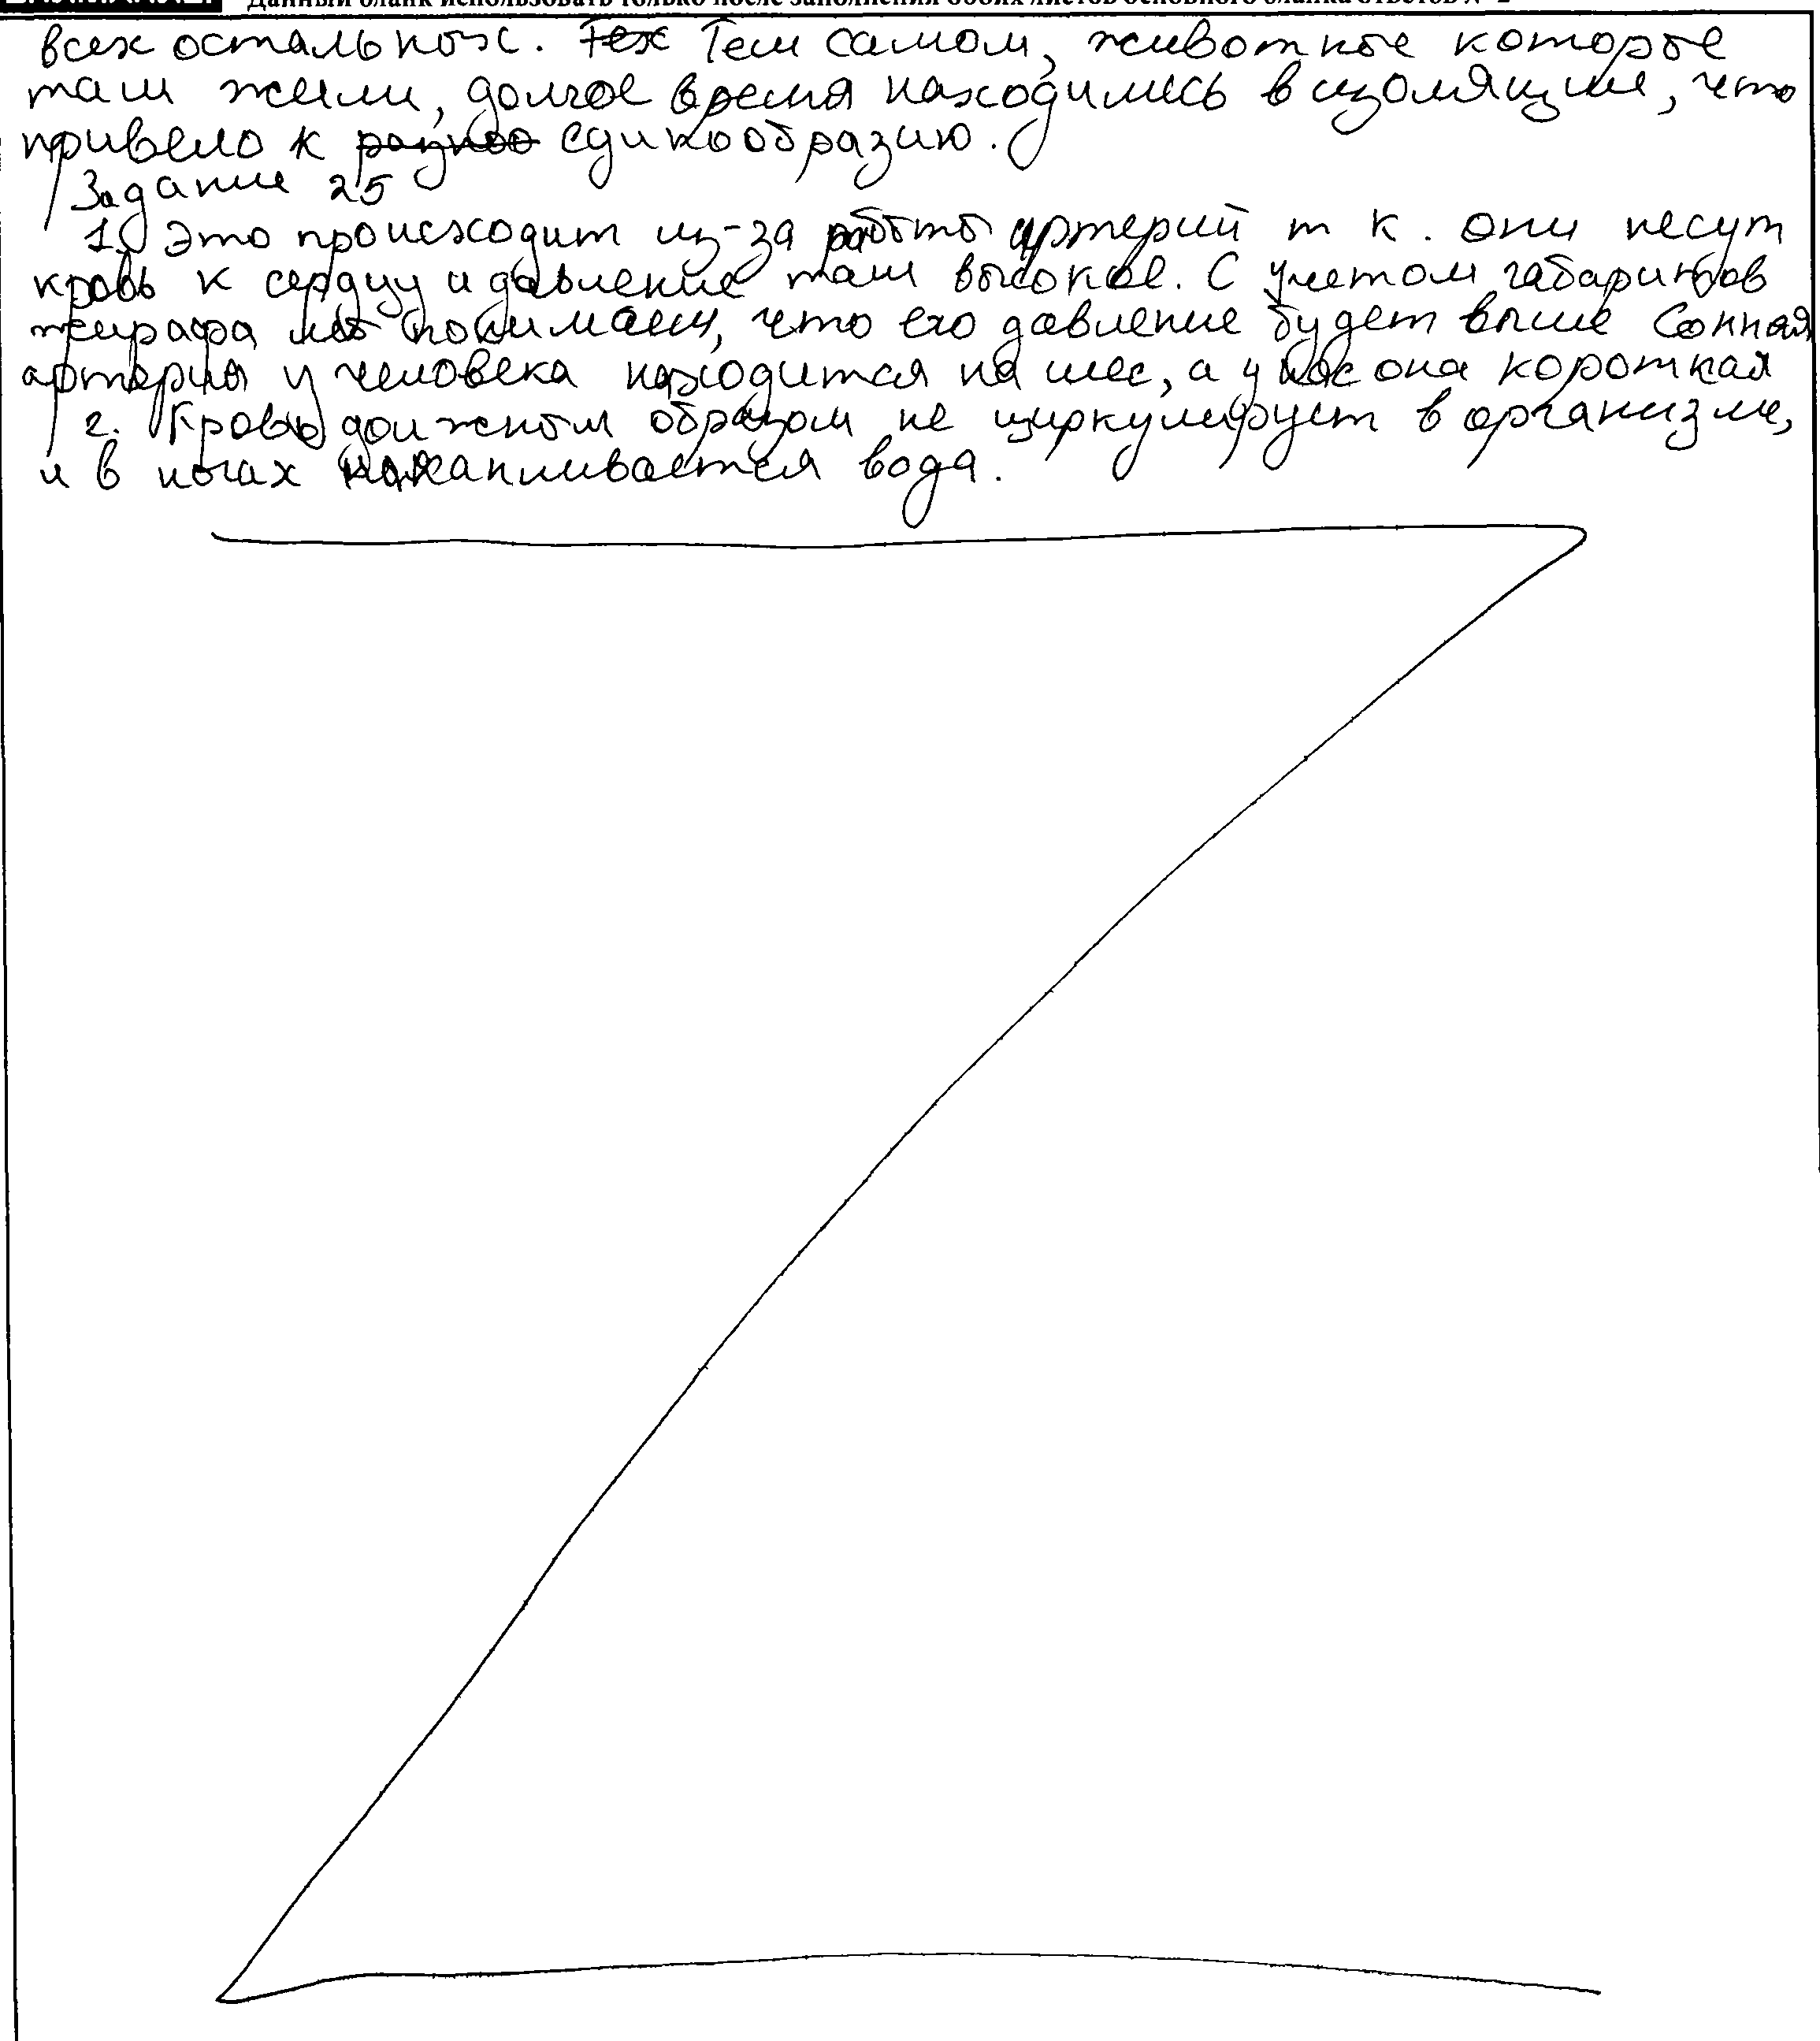 Данный бланк использовать только после заполнения обоих листов основного бланка ответов № 2
всех остальных. Тех Тем самом, животные которые
там жили, долгое время находились в изоляции, что
привело к разноо единообразию.
Задание 25
1. Это происходит из-за работы артерий т к. они несут
кровь к сердцу и давление там высокое. С учетом габаритов
жирафа мы понимаем, что его давление будет выше Сонная
артерия у человека находится на шее, а у нас она короткая
2. Кровь должным образом не циркулирует в организме,
и в ногах накапливается вода.